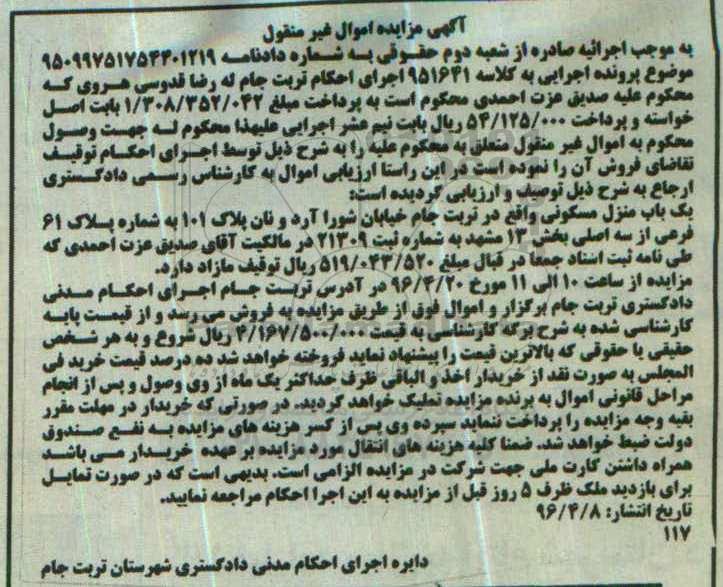 آگهی مزایده اموال غیر منقول
به موجب اجرائیه صادره از شعبه دوم حقوقی به شماره دادنامه ۹۵۰۹۹۷۵۱۷۵۴۴۰۱۲۱۹
موضوع پرونده اجرایی به کلاسه ۹۵۱۶۴۱ اجرای احکام تربت جام له رضا قدوسی هروی که
محکوم علیه صدیق عزت احمدی محکوم است به پرداخت مبلغ ۱/۳۰۸/۳۵۲/۰۴۲ بابت اصل
خواسته و پرداخت ۵۴/۱۲۵/۰۰۰ ریال بابت نیم عشر اجرایی علیهذا محکوم له جهت وصول
محکوم به اموال غیر منقول متعلق به محکوم علیه را به شرح ذیل توسط اجرای احکام توقیف
تقاضای فروش آن را نموده است در این راستا ارزیابی اموال به کارشناس رسمی دادگستری
ارجاع به شرح ذیل توصیف و ارزیابی گردیده است:
یک باب منزل مسکونی واقع در تربت جام خیابان شورا آرد و نان پلاک ۱۰۱ به شماره پلاک ۶۱
فرعی از سه اصلی بخش ۱۳ مشهد به شماره ثبت ۲۱۳۰۹ در مالکیت آقای صدیق عزت احمدی که
طی نامه ثبت اسناد جمعا در قبال مبلغ ۵۱۹/۰۴۳/۵۲۰ ریال توقیف مازاد دارد.
مزایده از ساعت ۱۰ الی ۱۱ مورخ ۹۶/۴/۲۰ در آدرس تربت جام اجرای احکام مدنی
دادگستری تربت جام برگزار و اموال فوق از طریق مزایده به فروش می رسد و از قیمت پایه
کارشناسی شده به شرح برگه کارشناسی به قیمت ۴/۱۶۷/۵۰۰/۰۰۰ ریال شروع و به هر شخص
حقیقی یا حقوقی که بالاترین قیمت را پیشنهاد نماید فروخته خواهد شد ده درصد قیمت خرید فی
المجلس به صورت نقد از خریدار اخذ و الباقی ظرف حداکثر یک ماه از وی وصول و پس از انجام
مراحل قانونی اموال به برنده مزایده تملیک خواهد گردید. در صورتی که خریدار در مهلت مقرر
بقیه وجه مزایده را پرداخت ننماید سپرده وی پس از کسر هزینه های مزایده به نفع صندوق
دولت ضبط خواهد شد. ضمنا کلیه هزینه های انتقال مورد مزایده بر عهده خریدار می باشد
همراه داشتن کارت ملی جهت شرکت در مزایده الزامی است. بدیهی است که در صورت تمایل
برای بازدید ملک ظرف ۵ روز قبل از مزایده به این اجرا احکام مراجعه نمایید.
تاریخ انتشار: ۹۶/۴/۸
۱۱۷
دایره اجرای احکام مدنی دادگستری شهرستان تربت جام